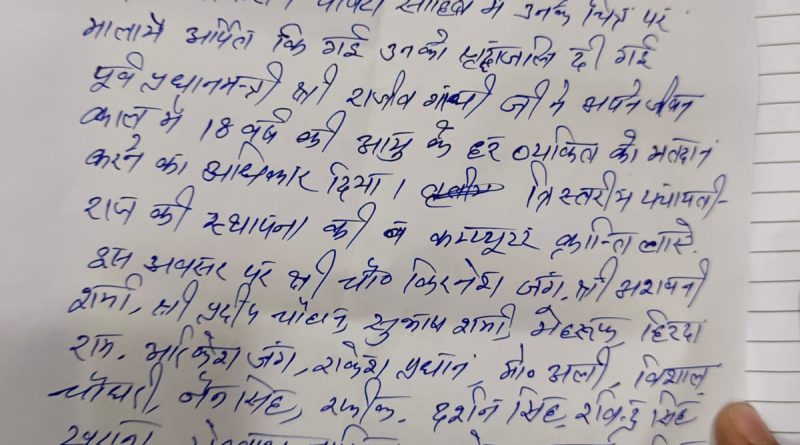 पांवटा साहिब में उनके चित्र पर
मालायें अर्पित कि गई उनको श्रद्धांजलि दी गई
पूर्व प्रधानमन्त्री श्री राजीव गांधी जी ने अपने जीवन
काल में 18 वर्ष की आयु के हर व्यकित को मतदान
करने का अधिकार दिया। त्रिस्तरीय पंचायती-
राज की स्थापना की व कम्प्यूटर क्रान्ति लाये.
इस अवसर पर श्री चौ० किरनेश जंग, श्री अश्वनी
शर्मा, श्री प्रदीप चौहान, सुभाष शर्मा, हिरदा
राम, जंग, राकेश प्रधान, मो० अली, विशाल
चौधरी, जैन सिंह, रफीक, दर्शन सिंह, सिंह